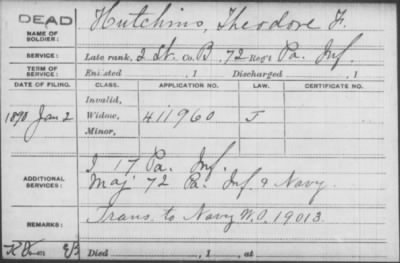 DEAD
NAME OF SOLDIER: Hutchins, Theodore F.
SERVICE: Late rank, 2 Lt. Co. B, 72 Reg't Pa. Inf.
TERM OF SERVICE: Enlisted , 1 Discharged , 1
DATE OF FILING. CLASS. APPLICATION NO. LAW. CERTIFICATE NO.
Invalid,
1890 Jan 2 Widow, 411960 J
Minor,
I 17 Pa. Inf.
ADDITIONAL SERVICES: Maj 72 Pa. Inf & Navy.
REMARKS: Trans. to Navy W.O. 19013.
Died , 1 , at